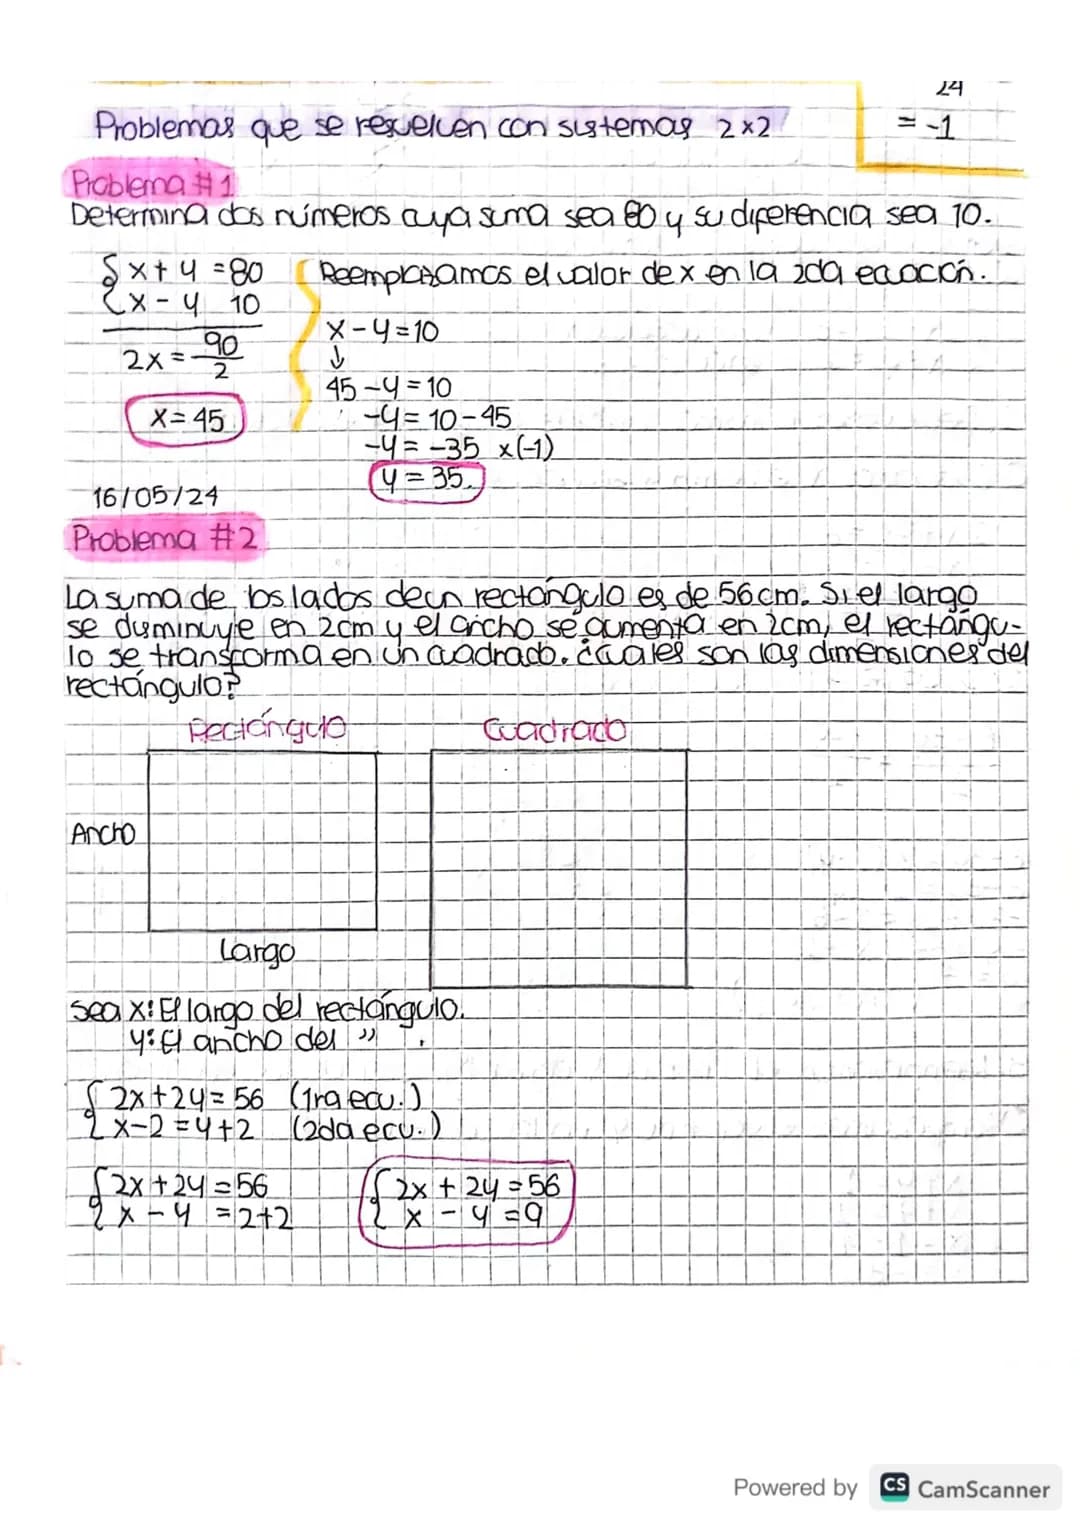 24
= -1
Problemas que se resuelven con sistemas 2x2
Problema #1
Determina dos números cuya suma sea 80 y su diferencia sea 10.
x + y = 80
x - y 10
2x = 90
2
x = 45
Reemplazamos el valor de x en la 2da ecuación.
x - y = 10
↓
45 - y = 10
-y = 10 - 45
-y = -35 x(-1)
y = 35.
16/05/24
Problema #2
La suma de los lados de un rectángulo es de 56cm. Si el largo
se dusminuye en 2cm y el ancho se aumenta en 2cm, el rectángu-
lo se transforma en un cuadrado. ¿cuales son las dimensiones del
rectángulo?
Rectángulo
Cuadrado
Ancho
Largo
sea x: El largo del rectángulo.
y: El ancho del " .
2x + 2y = 56 (1ra ecu.)
x - 2 = y + 2 (2da ecu.)
2x + 2y = 56
x - y = 2+2
2x + 2y = 56
x - y = 9
Powered by CS CamScanner